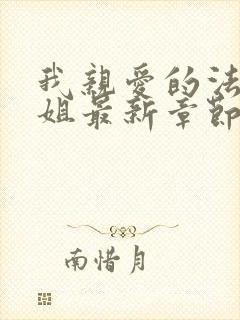 我親愛的法
姐最新章節
南惜月